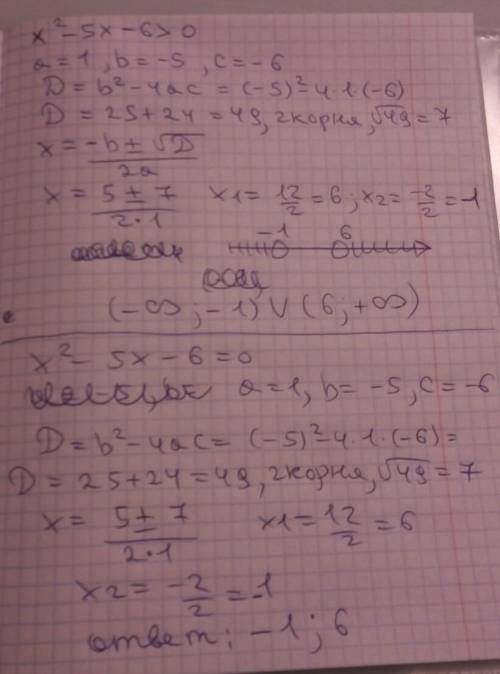 x²-5x-6>0
a=1, b=-5, c=-6
D=b²-4ac=(-5)²-4·1·(-6)
D=25+24=49, 2корня, √49=7
x=(-b±√D)/2a
x=(5±7)/(2·1) x1=12/2=6; x2=-2/2=-1
-1 6
(-∞;-1)∨(6;+∞)
x²-5x-6=0
a=1, b=-5, c=-6
D=b²-4ac=(-5)²-4·1·(-6)=
D=25+24=49, 2корня, √49=7
x=(5±7)/(2·1) x1=12/2=6
x2=-2/2=-1
ответ: -1; 6